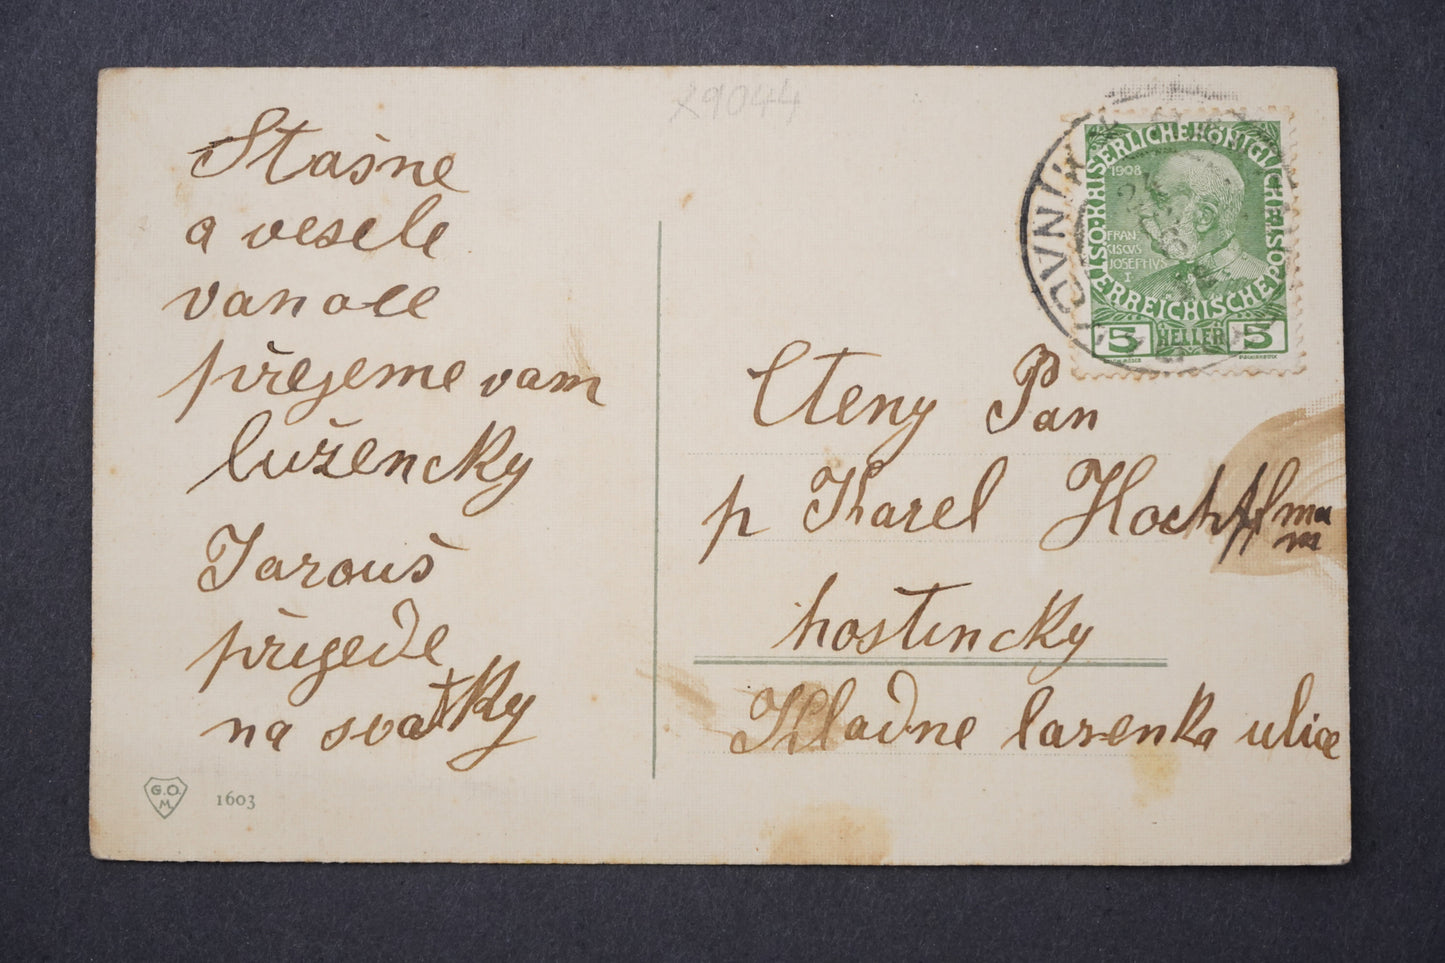 29044
Stašne
a vesele
vanoce
přejeme vam
lužencky
Jarouš
přigede
na svatky
G.O.
M.
1603
KAISERLICHE KÖNIGLICHE
ÖSTERREICHISCHE POST
1908
FRAN
CISCUS
JOSEPHVS
I.
5 HELLER 5
Cteny Pan
p Karel Hochman
hostincky
Kladne larenka ulice